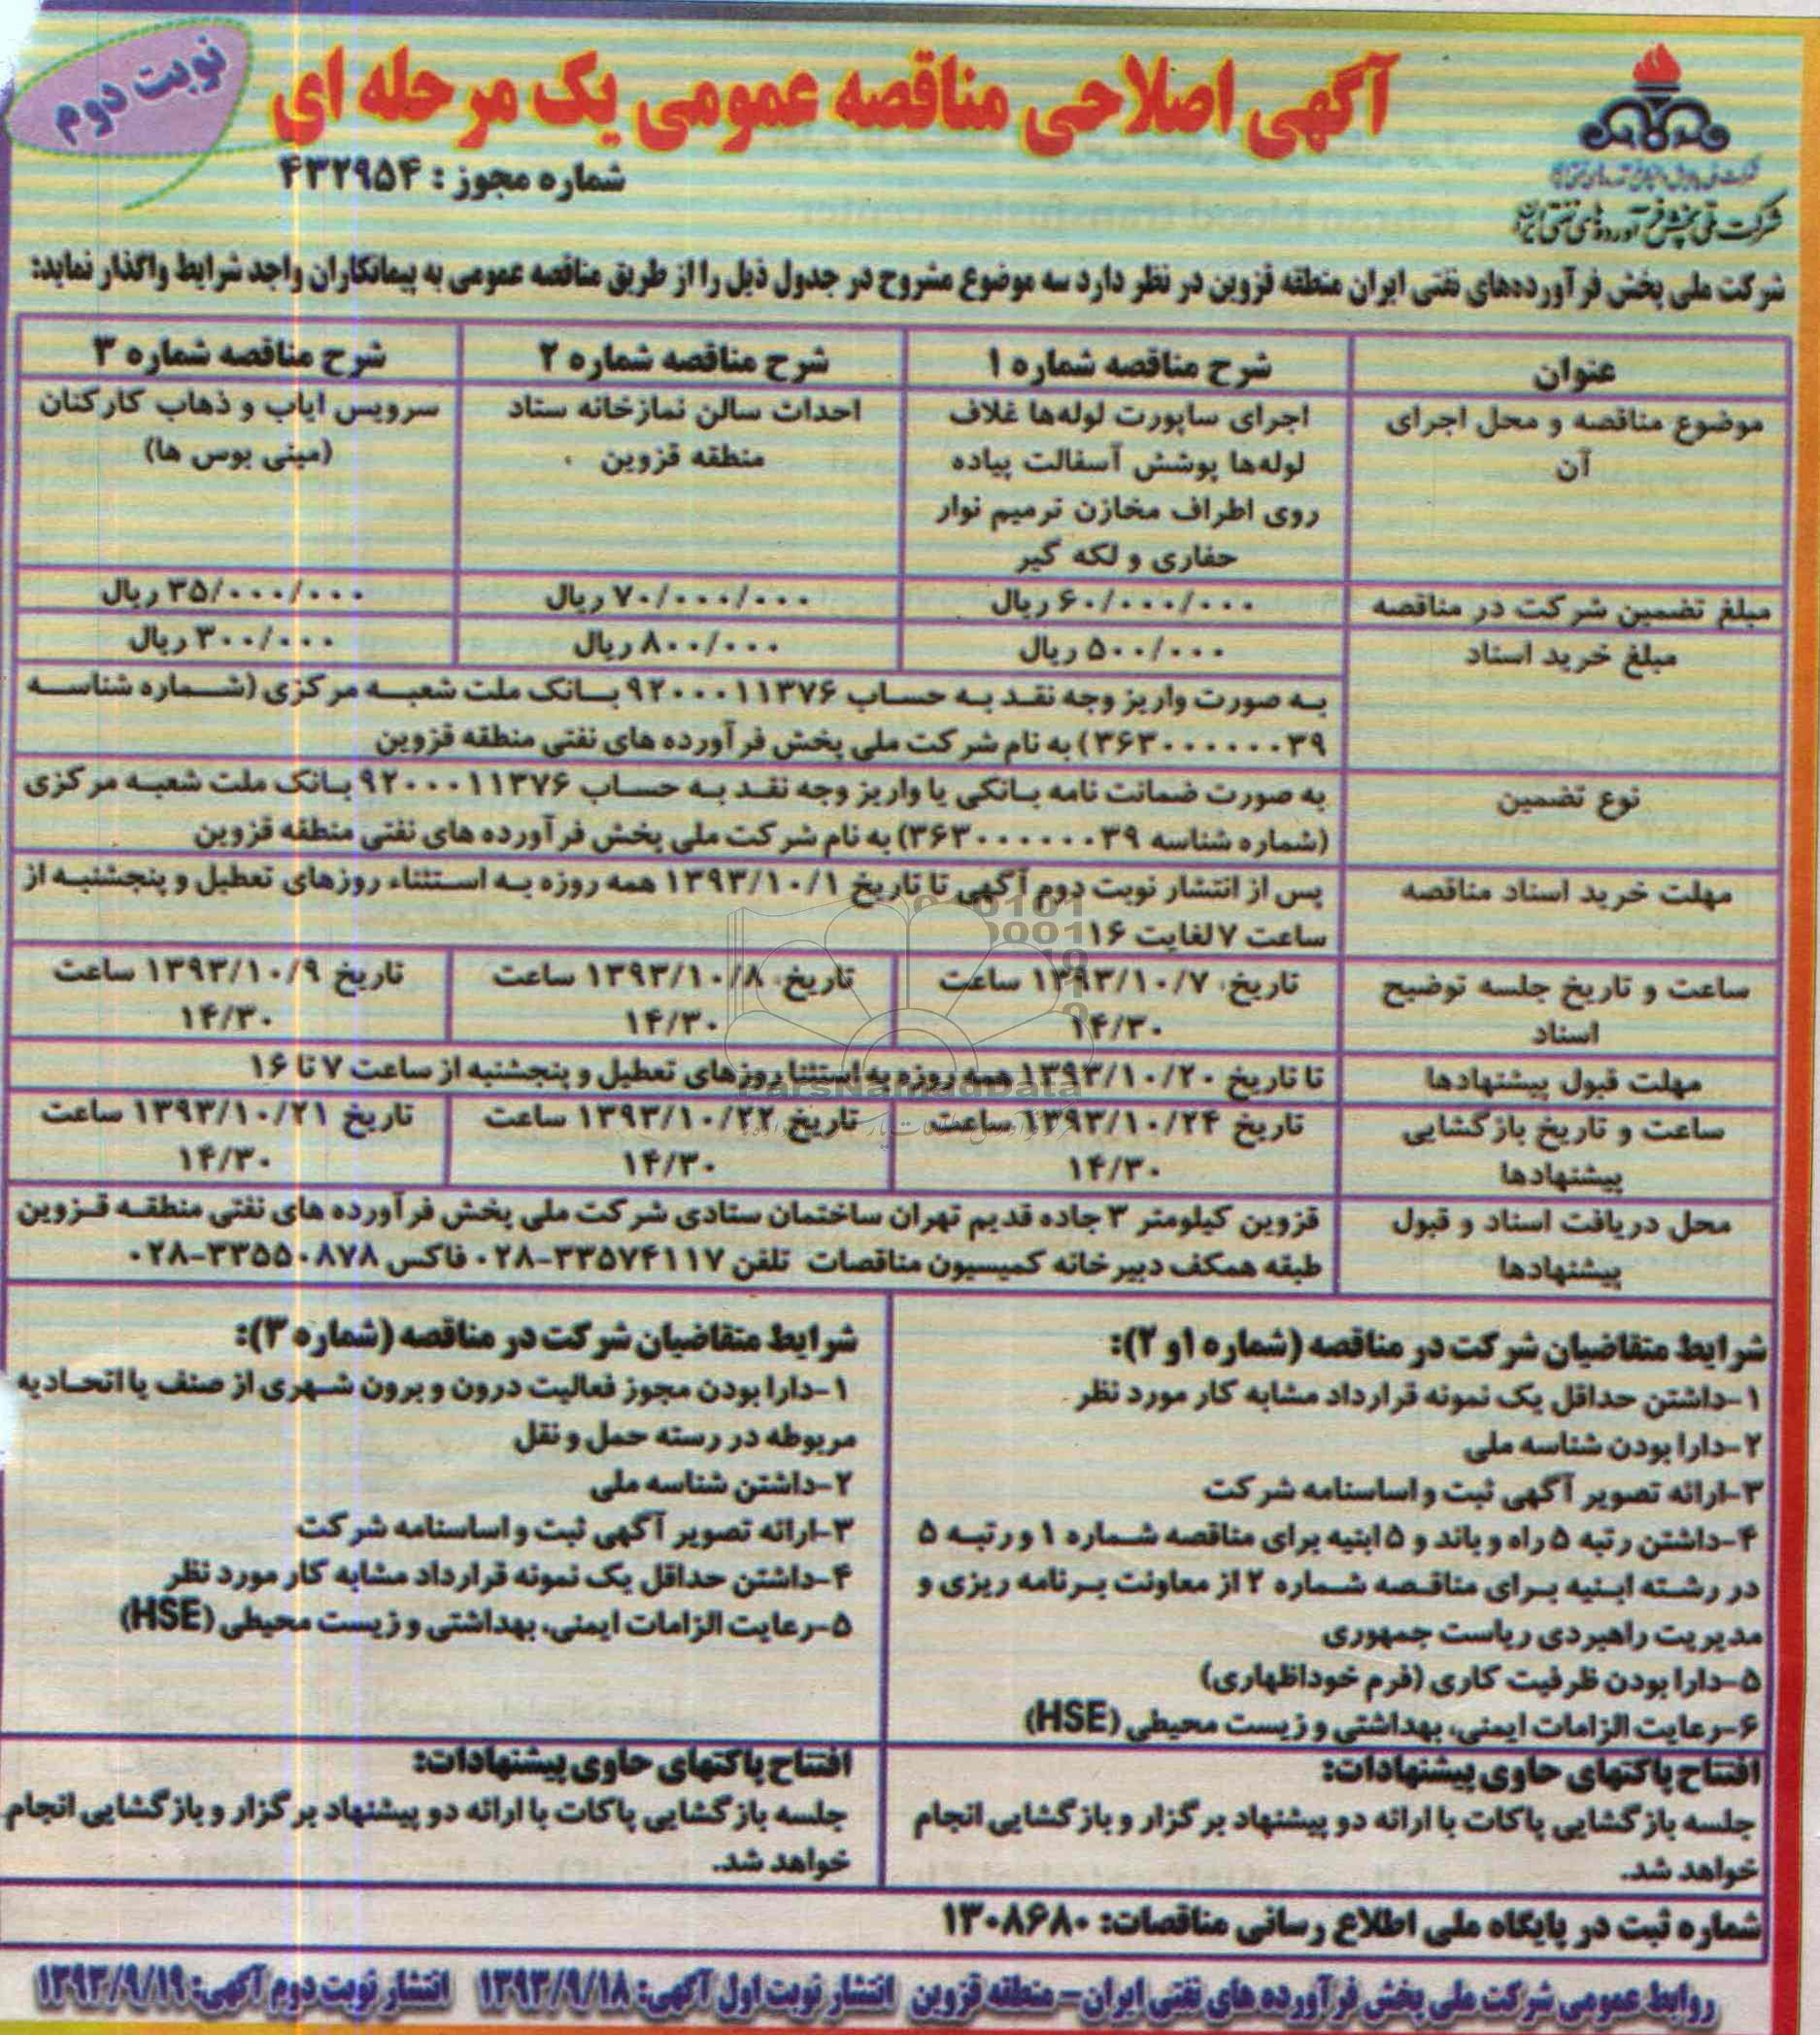 نوبت دوم
آگهی اصلاحی مناقصه عمومی یک مرحله ای
شماره مجوز : ۴۳۲۹۵۴
شرکت ملی پخش فرآورده‌های نفتی ایران
شرکت ملی پخش فرآورده‌های نفتی ایران منطقه قزوین در نظر دارد سه موضوع مشروح در جدول ذیل را از طریق مناقصه عمومی به پیمانکاران واجد شرایط واگذار نماید:
عنوان
شرح مناقصه شماره ۱
شرح مناقصه شماره ۲
شرح مناقصه شماره ۳
موضوع مناقصه و محل اجرای
آن
اجرای ساپورت لوله‌ها غلاف
لوله‌ها پوشش آسفالت پیاده
روی اطراف مخازن ترمیم نوار
حفاری و لکه گیر
احداث سالن نمازخانه ستاد
منطقه قزوین
سرویس ایاب و ذهاب کارکنان
(مینی بوس ها)
مبلغ تضمین شرکت در مناقصه
۶۰/۰۰۰/۰۰۰ ریال
۷۰/۰۰۰/۰۰۰ ریال
۳۵/۰۰۰/۰۰۰ ریال
مبلغ خرید اسناد
۵۰۰/۰۰۰ ریال
۸۰۰/۰۰۰ ریال
۳۰۰/۰۰۰ ریال
به صورت واریز وجه نقد به حساب ۹۲۰۰۰۱۱۳۷۶ بانک ملت شعبه مرکزی (شماره شناسه
۳۶۳۰۰۰۰۰۰۳۹) به نام شرکت ملی پخش فرآورده های نفتی منطقه قزوین
نوع تضمین
به صورت ضمانت نامه بانکی یا واریز وجه نقد به حساب ۹۲۰۰۰۱۱۳۷۶ بانک ملت شعبه مرکزی
(شماره شناسه ۳۶۳۰۰۰۰۰۰۳۹) به نام شرکت ملی پخش فرآورده های نفتی منطقه قزوین
مهلت خرید اسناد مناقصه
پس از انتشار نوبت دوم آگهی تا تاریخ ۱۳۹۳/۱۰/۱ همه روزه به استثناء روزهای تعطیل و پنجشنبه از
ساعت ۷ لغایت ۱۶
ساعت و تاریخ جلسه توضیح
اسناد
تاریخ ۱۳۹۳/۱۰/۷ ساعت
۱۴/۳۰
تاریخ ۱۳۹۳/۱۰/۸ ساعت
۱۴/۳۰
تاریخ ۱۳۹۳/۱۰/۹ ساعت
۱۴/۳۰
مهلت قبول پیشنهادها
تا تاریخ ۱۳۹۳/۱۰/۲۰ همه روزه به استثنا روزهای تعطیل و پنجشنبه از ساعت ۷ تا ۱۶
ParsNamadData
ساعت و تاریخ بازگشایی
پیشنهادها
تاریخ ۱۳۹۳/۱۰/۲۴ ساعت
۱۴/۳۰
تاریخ ۱۳۹۳/۱۰/۲۲ ساعت
۱۴/۳۰
تاریخ ۱۳۹۳/۱۰/۲۱ ساعت
۱۴/۳۰
محل دریافت اسناد و قبول
پیشنهادها
قزوین کیلومتر ۳ جاده قدیم تهران ساختمان ستادی شرکت ملی پخش فرآورده های نفتی منطقه قزوین
طبقه همکف دبیرخانه کمیسیون مناقصات تلفن ۳۳۵۷۴۱۱۷-۰۲۸ فاکس ۳۳۵۵۰۸۷۸-۰۲۸
شرایط متقاضیان شرکت در مناقصه (شماره ۱ و ۲):
۱-داشتن حداقل یک نمونه قرارداد مشابه کار مورد نظر
۲-دارا بودن شناسه ملی
۳-ارائه تصویر آگهی ثبت و اساسنامه شرکت
۴-داشتن رتبه ۵ راه و باند و ۵ ابنیه برای مناقصه شماره ۱ و رتبه ۵
در رشته ابنیه برای مناقصه شماره ۲ از معاونت برنامه ریزی و
مدیریت راهبردی ریاست جمهوری
۵-دارا بودن ظرفیت کاری (فرم خوداظهاری)
۶-رعایت الزامات ایمنی، بهداشتی و زیست محیطی (HSE)
افتتاح پاکتهای حاوی پیشنهادات:
جلسه بازگشایی پاکات با ارائه دو پیشنهاد برگزار و بازگشایی انجام
خواهد شد.
شرایط متقاضیان شرکت در مناقصه (شماره ۳):
۱-دارا بودن مجوز فعالیت درون و برون شهری از صنف یا اتحادیه
مربوطه در رسته حمل و نقل
۲-داشتن شناسه ملی
۳-ارائه تصویر آگهی ثبت و اساسنامه شرکت
۴-داشتن حداقل یک نمونه قرارداد مشابه کار مورد نظر
۵-رعایت الزامات ایمنی، بهداشتی و زیست محیطی (HSE)
افتتاح پاکتهای حاوی پیشنهادات:
جلسه بازگشایی پاکات با ارائه دو پیشنهاد برگزار و بازگشایی انجام
خواهد شد.
شماره ثبت در پایگاه ملی اطلاع رسانی مناقصات: ۱۳۰۸۶۸۰
روابط عمومی شرکت ملی پخش فرآورده های نفتی ایران- منطقه قزوین انتشار نوبت اول آگهی: ۱۳۹۳/۹/۱۸ انتشار نوبت دوم آگهی: ۱۳۹۳/۹/۱۹